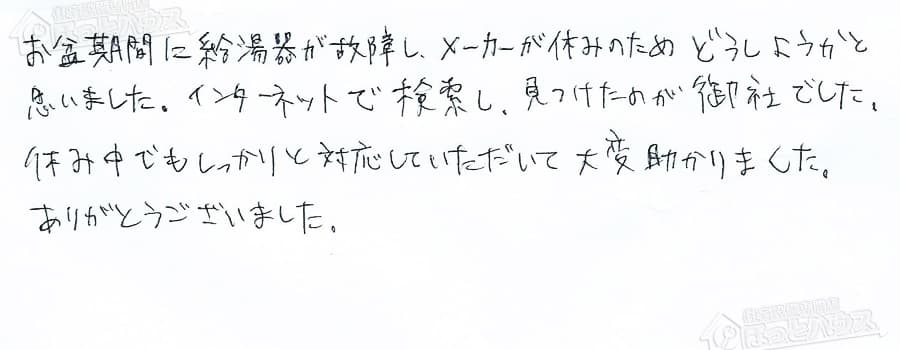 お盆期間に給湯器が故障し、メーカーが休みのためどうしようかと
思いました。インターネットで検索し、見つけたのが御社でした。
休み中でもしっかりと対応していただいて大変助かりました。
ありがとうございました。
住宅設備専門店
ほっとハウス